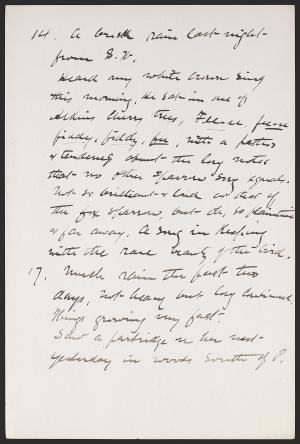 14. A brisk rain last night
from S.W.
Heard my white crown sing
this morning. He sat in one of
Atkins cherry trees, Fee-u, fee-u
fiddy, fiddy, fee, with a pathos
& tenderness about the long notes
that no other sparrow song equals.
Not so brilliant & loud as that of
the fox sparrow, but oh, so plaintive
& far away. A song in keeping
with the rare beauty of the bird.
17. Much rain the past two
days, not heavy but long continued.
Things growing very fast.
Saw a partridge on her nest
yesterday in woods South of P.